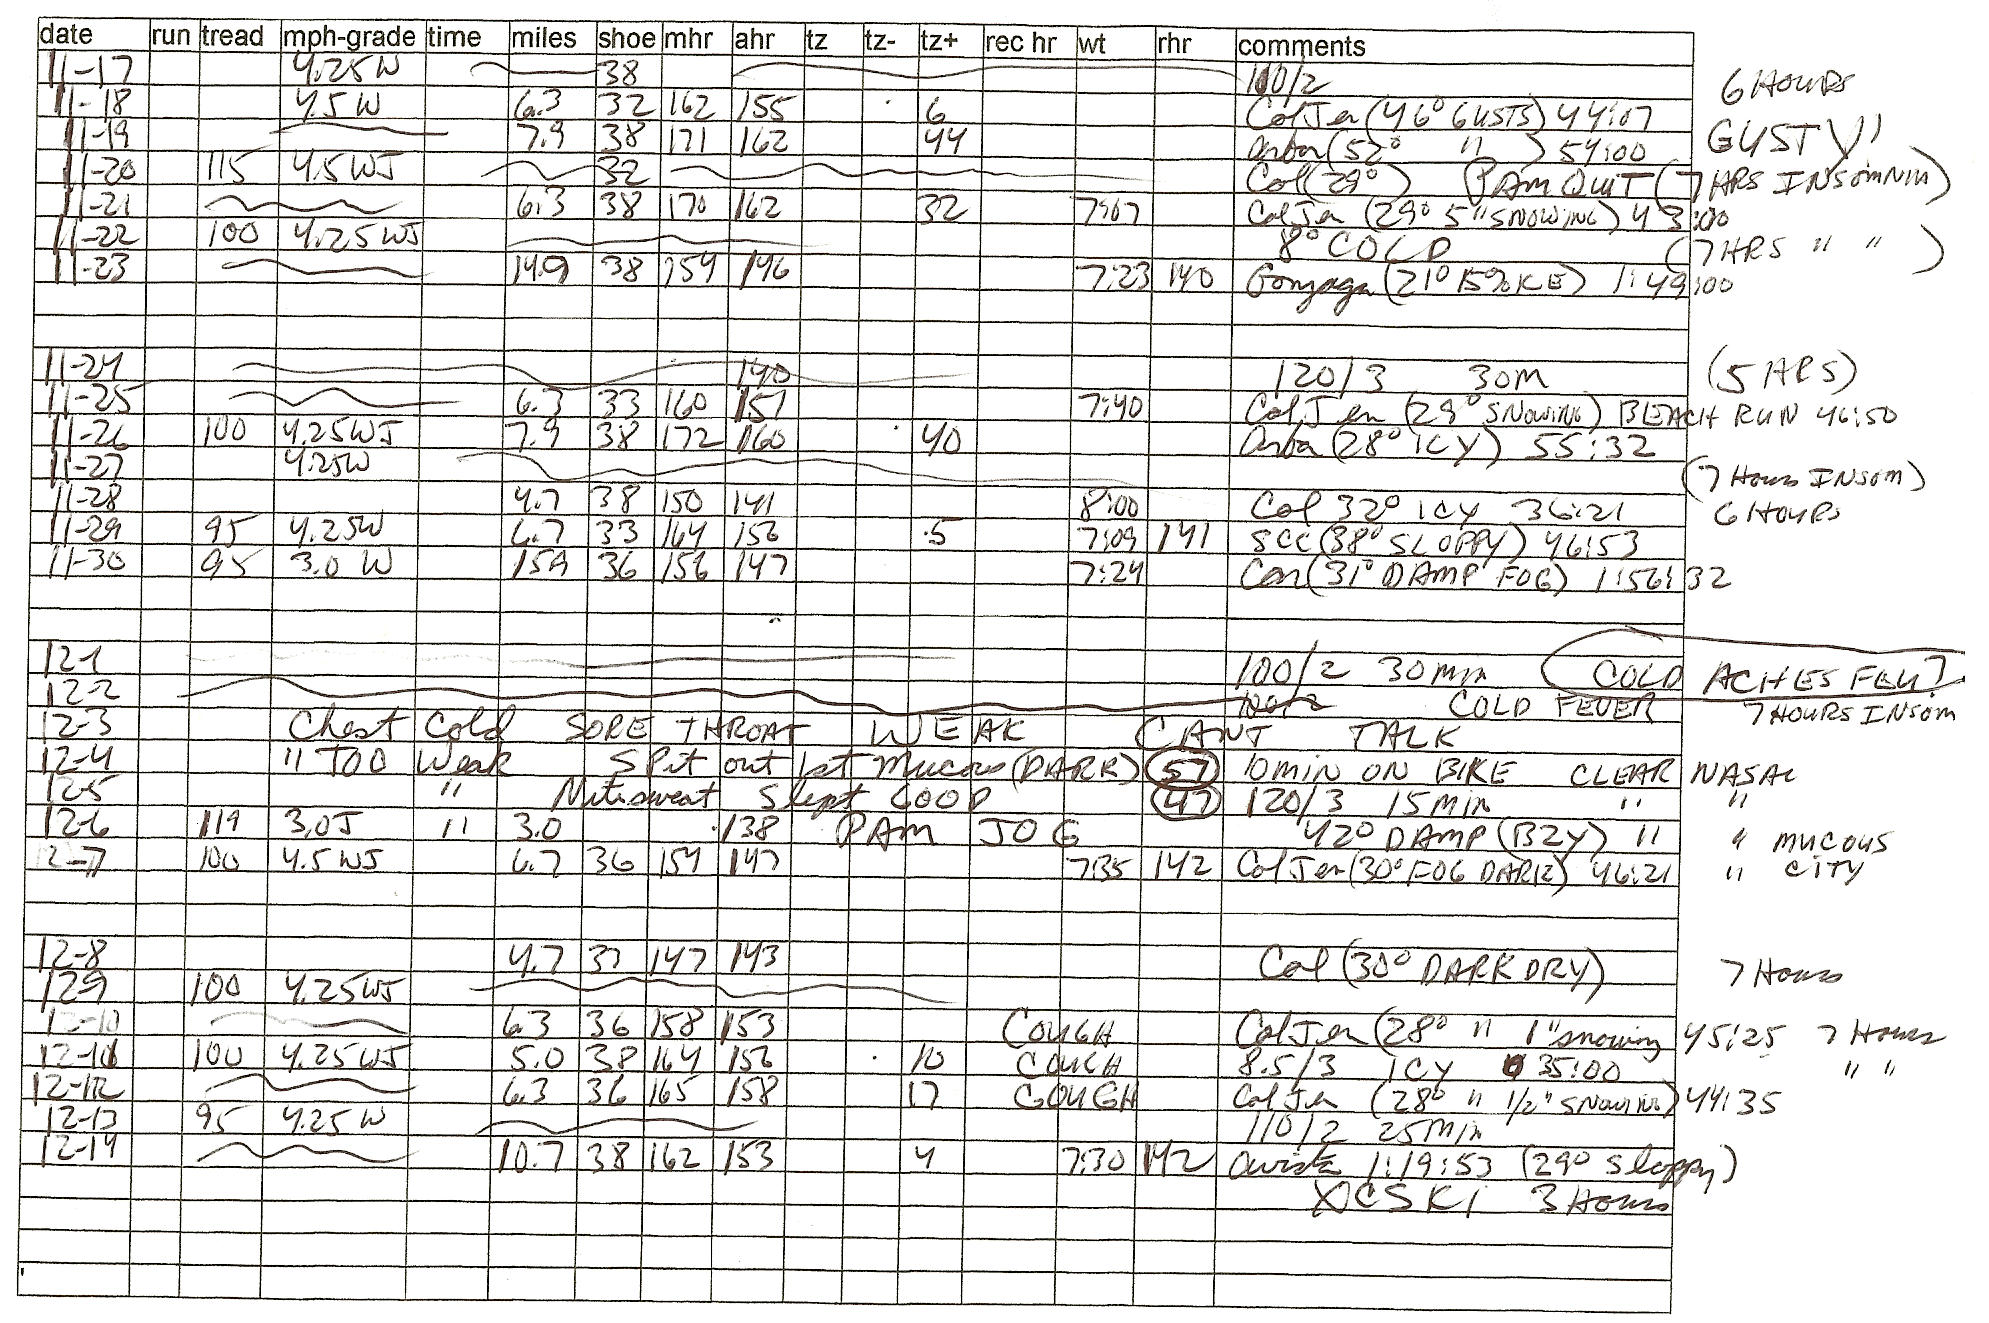 date run tread mph-grade time miles shoe mhr ahr tz tz- tz+ rec hr wt rhr comments
11-17 4.25W 38 110/2 6 HOURS
11-18 4.5 W 6.3 32 162 155 6 ColJen (46° GUSTS) 44:07
11-19 7.9 38 171 162 44 (52° " ) 54:00 GUSTY!
11-20 115 4.5WJ 32 Col (29°) PAM QUIT (7 HRS INSOMNIA)
11-21 6.3 38 170 162 32 7:07 ColJen (29° 5" SNOWING) 43:00
11-22 100 4.25WJ 8° COLD (7HRS " " )
11-23 14.9 38 159 146 7:23 140 Gonzaga (21° 15% ICE) 1:49:00
11-24 140 120/3 30M (5 HRS)
11-25 6.3 33 160 151 7:40 ColJen (29° SNOWING) BEACH RUN 46:50
11-26 100 4.25WJ 7.9 38 172 160 40 (28° ICY) 55:32
11-27 4.25W (7 Hours INSOM)
11-28 4.7 38 150 141 8:00 Col 32° ICY 36:21 6 HOURS
11-29 95 4.25W 6.7 33 164 156 .5 7:09 141 SCC (38° SLOPPY) 46:53
11-30 95 3.0 W 15.9 36 156 147 7:24 (31° DAMP FOG) 1:56:32
12-1 100/2 30 min COLD ACHES FLU?
12-2 100/2 COLD FEVER 7 HOURS INSOM
12-3 Chest Cold SORE THROAT WEAK CANT TALK
12-4 " TOO Weak Spit out 1st Mucous (DARK) 57 10 MIN ON BIKE CLEAR NASAL
12-5 " Nitesweat Slept GOOD 47 120/3 15 Min " "
12-6 119 3.0J " 3.0 138 PAM JOG 42° DAMP (BZY) " " MUCOUS
12-7 100 4.5 WJ 6.7 36 159 147 7:35 142 ColJen (30° FOG DARK) 46:21 " CITY
12-8 4.7 37 147 143 Col (30° DARK DRY) 7 Hours
12-9 100 4.25WJ
12-10 6.3 36 158 153 COUGH ColJen (28° " 1" snowing 45:25 7 Hours
12-11 100 4.25WJ 5.0 38 164 156 10 COUGH 8.5/3 ICY 35:00 " "
12-12 6.3 36 165 158 17 COUGH ColJen (28° " 1/2" SNOWING) 44:35
12-13 95 4.25 W 110/2 25 Min
12-14 10.7 38 162 153 4 7:30 142 Avista 1:19:53 (29° Sloppy)
XC SKI 3 Hours